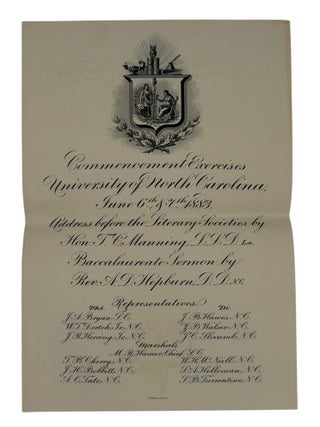 Commencement Exercises
University of North Carolina.
June 6th & 7th 1883.
Address before the Literary Societies by
Hon. T. C. Manning, L.L.D. La.
Baccalaureate Sermon by
Rev. A. D. Hepburn, D.D. N.C.
Representatives
Phi.
J. A. Bryan, S.C.
W. T. Dortch Jr. N.C.
J. R. Herring Jr. N.C.
Di.
J. B. Hawes, N.C.
J. Z. Walser, N.C.
J. C. Slocumb, N.C.
Marshals
M. R. Hamer, Chief, S.C.
T. B. Cherry, N.C.
J. H. Bobbitt, N.C.
A. C. Tate, N.C.
W. H. McNeill, N.C.
S. A. Holleman, N.C.
L. B. Turrentine, N.C.